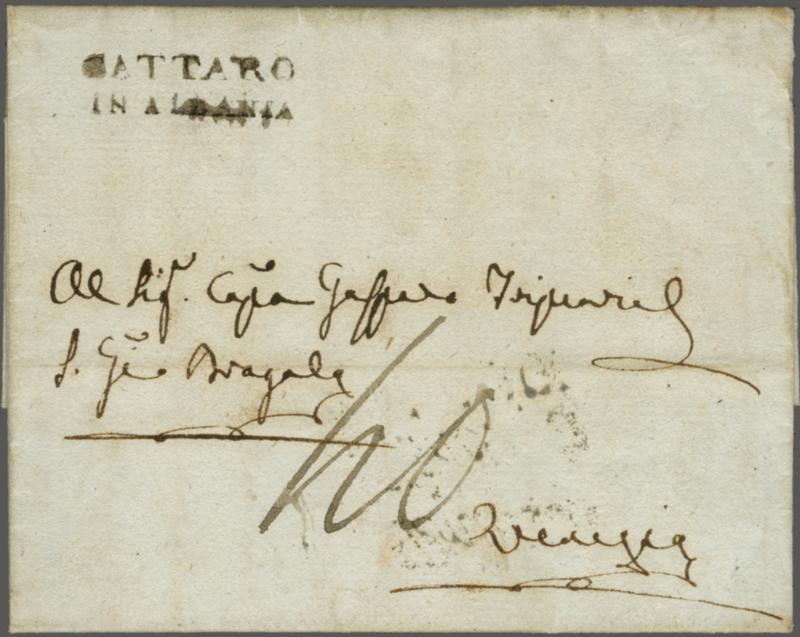 CATTARO
IN ALBANIA
Al Sig.r Cap.n Gasparo
S. Gio Bragola
40
Venezia